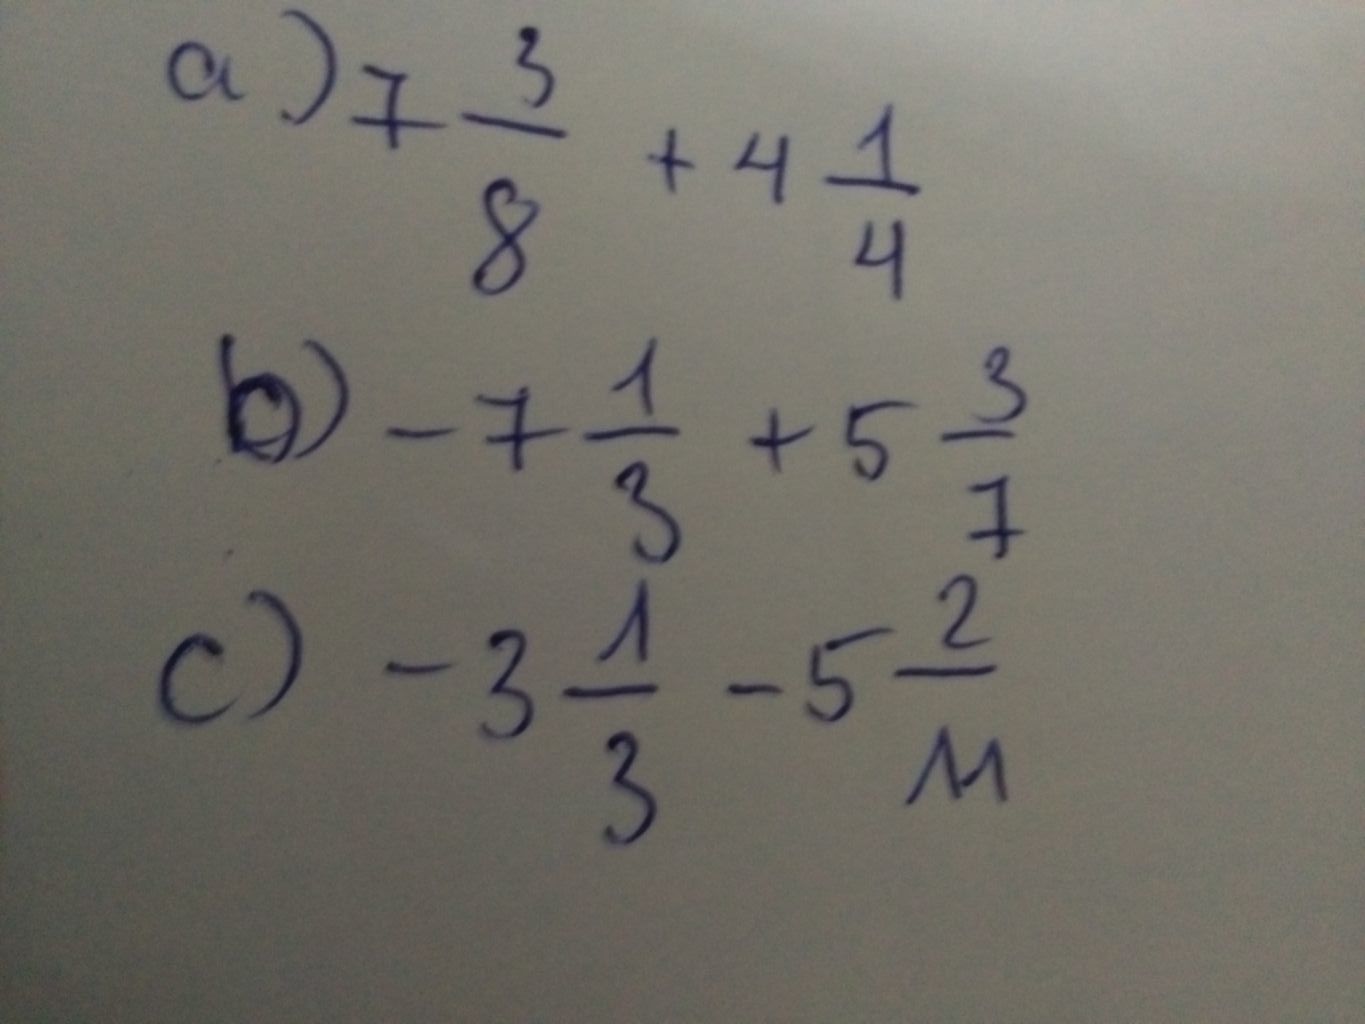 a) 7 3/8 + 4 1/4
b) - 7 1/3 + 5 3/7
c) - 3 1/3 - 5 2/11